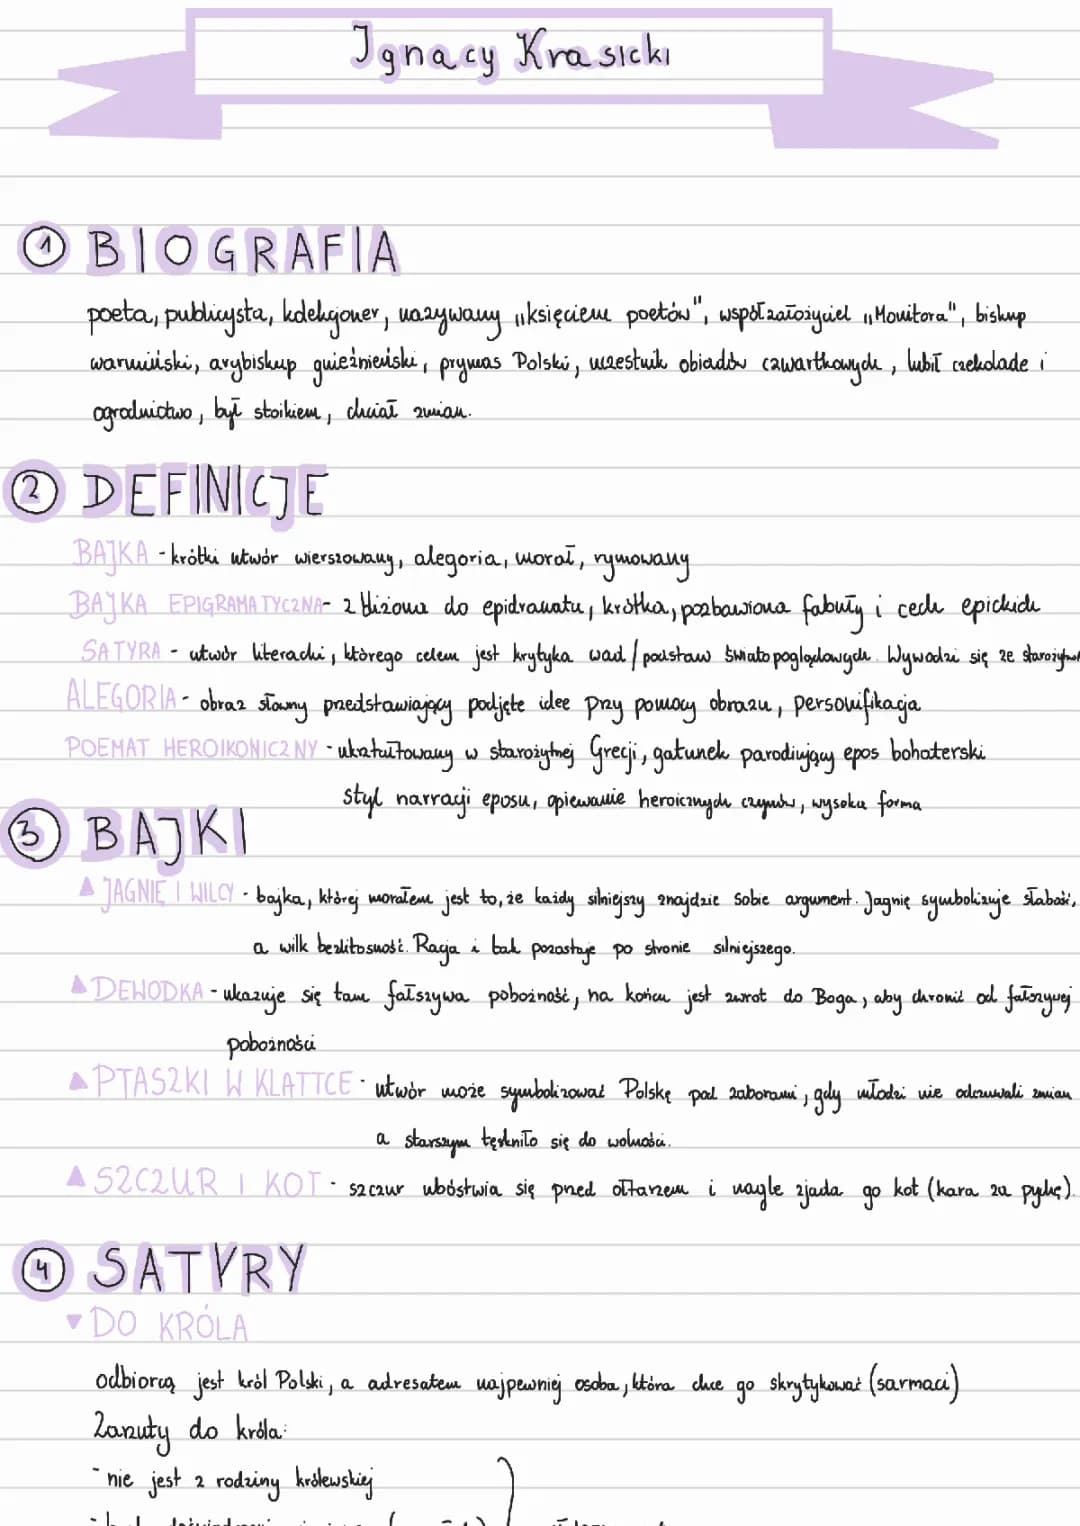 Ignacy Krasicki
1 BIOGRAFIA
poeta, publicysta, kolekcjoner, nazywany „księciem poetów", współzałożyciel „Monitora", biskup
warmiński, arybiskup gnieźnieński, prymas Polski, uczestnik obiadów czwartkowych, lubił czekolade i
ogrodnictwo, był stoikiem, chciał zmian.
2 DEFINICJE
BAJKA - krótki utwór wierszowany, alegoria, morał, rymowany
BAJKA EPIGRAMATYCZNA - zbliżona do epidramatu, krótka, pozbawiona fabuły i cech epickich
SATYRA - utwór literacki, którego celem jest krytyka wad / postaw światopoglądowych. Wywodzi się ze
ALEGORIA - obraz słowny przedstawiający podjęte idee przy pomocy obrazu, personifikacja
POEMAT HEROIKONICZNY - ukształtowany w starożytnej Grecji, gatunek parodiujący epos bohaterski
styl narracji eposu, opiewanie heroicznych czynów, wysoka forma
3 BAJKI
▲ JAGNIĘ I WILCY - bajka, której morałem jest to, że każdy silniejszy znajdzie sobie argument. Jagnię symbolizuje słabość,
a wilk bezlitosność. Racja i tak pozostaje po stronie silniejszego.
▲ DEWODKA - ukazuje się tam fałszywa pobożność, na końcu jest zwrot do Boga, aby chronić od fałszywej
pobożności
▲ PTASZKI W KLATTCE - utwór może symbolizować Polskę pod zaborami, gdy młodzi nie odczuwali zmian
a starszym tęskniło się do wolności.
▲ SZCZUR I KOT - szczur ubóstwia się przed ołtarzem i nagle zjada go kot (kara za pychę).
4 SATYRY
▼ DO KRÓLA
odbiorcą jest król Polski, a adresatem najpewniej osoba, która chce go skrytykować (sarmaci)
Zarzuty do króla:
- nie jest z rodziny królewskiej